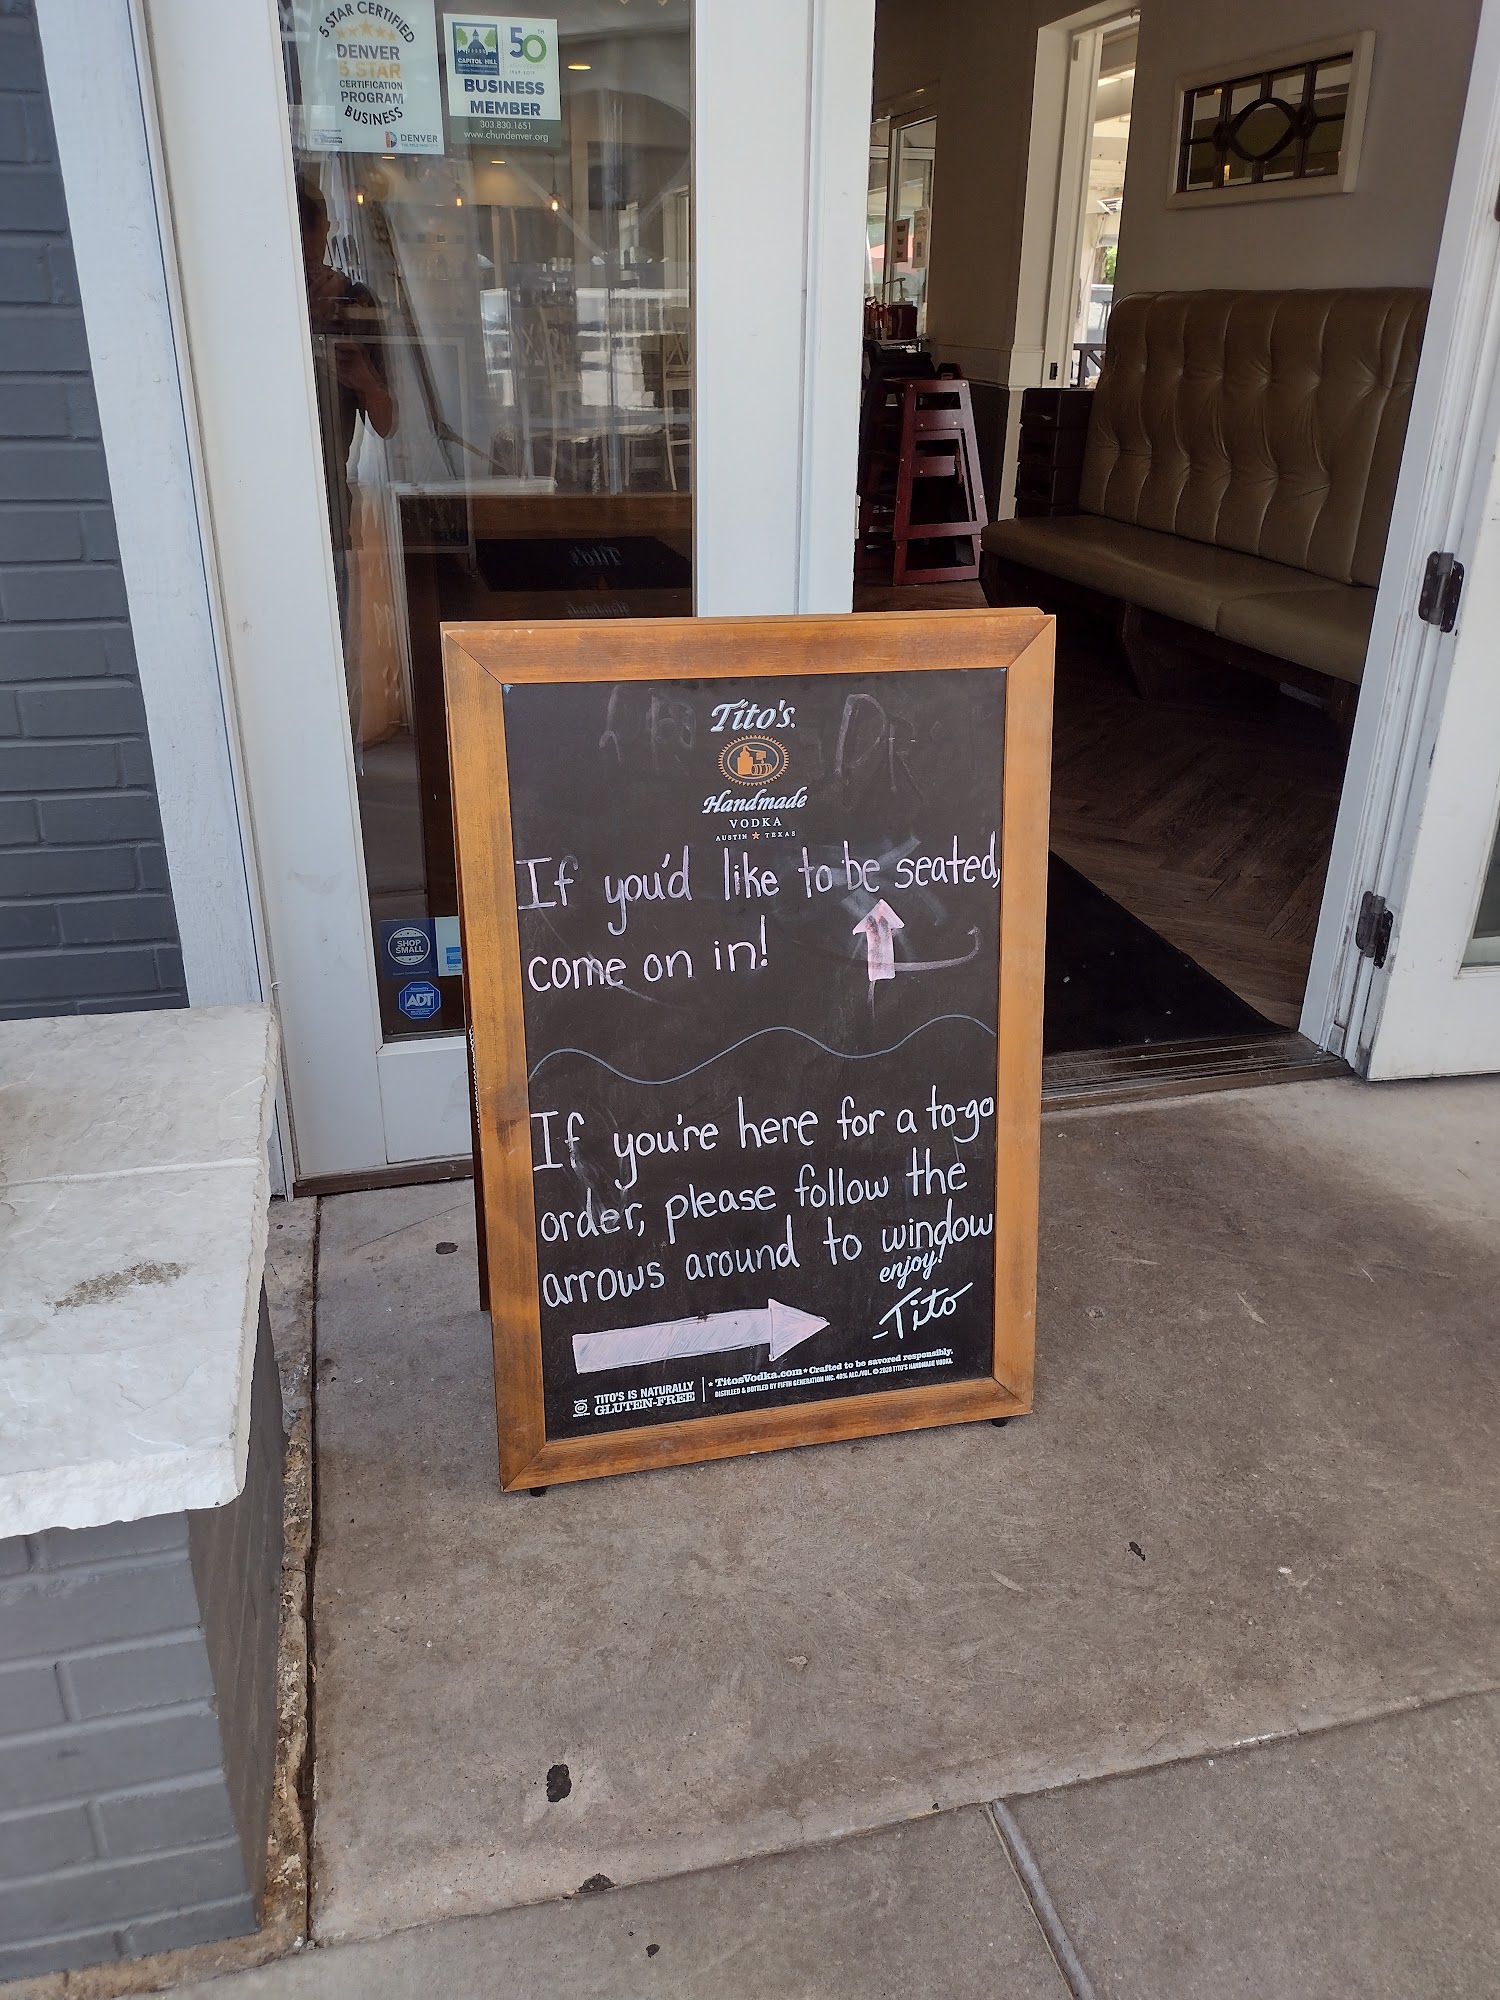 5 STAR CERTIFIED
DENVER
5 STAR
CERTIFICATION
PROGRAM
BUSINESS
DENVER
CAPITOL HILL
50TH
BUSINESS
MEMBER
303.830.1651
www.chundenver.org
Tito's
Handmade
Tito's
Handmade
VODKA
AUSTIN ★ TEXAS
If you'd like to be seated,
come on in!
If you're here for a to-go
order, please follow the
arrows around to window
enjoy!
-Tito
TITO'S IS NATURALLY
GLUTEN-FREE
★ TitosVodka.com ★ Crafted to be savored responsibly.
DISTILLED & BOTTLED BY FIFTH GENERATION INC. 40% ALC./VOL. © 2020 TITO'S HANDMADE VODKA.
SHOP
SMALL
ADT